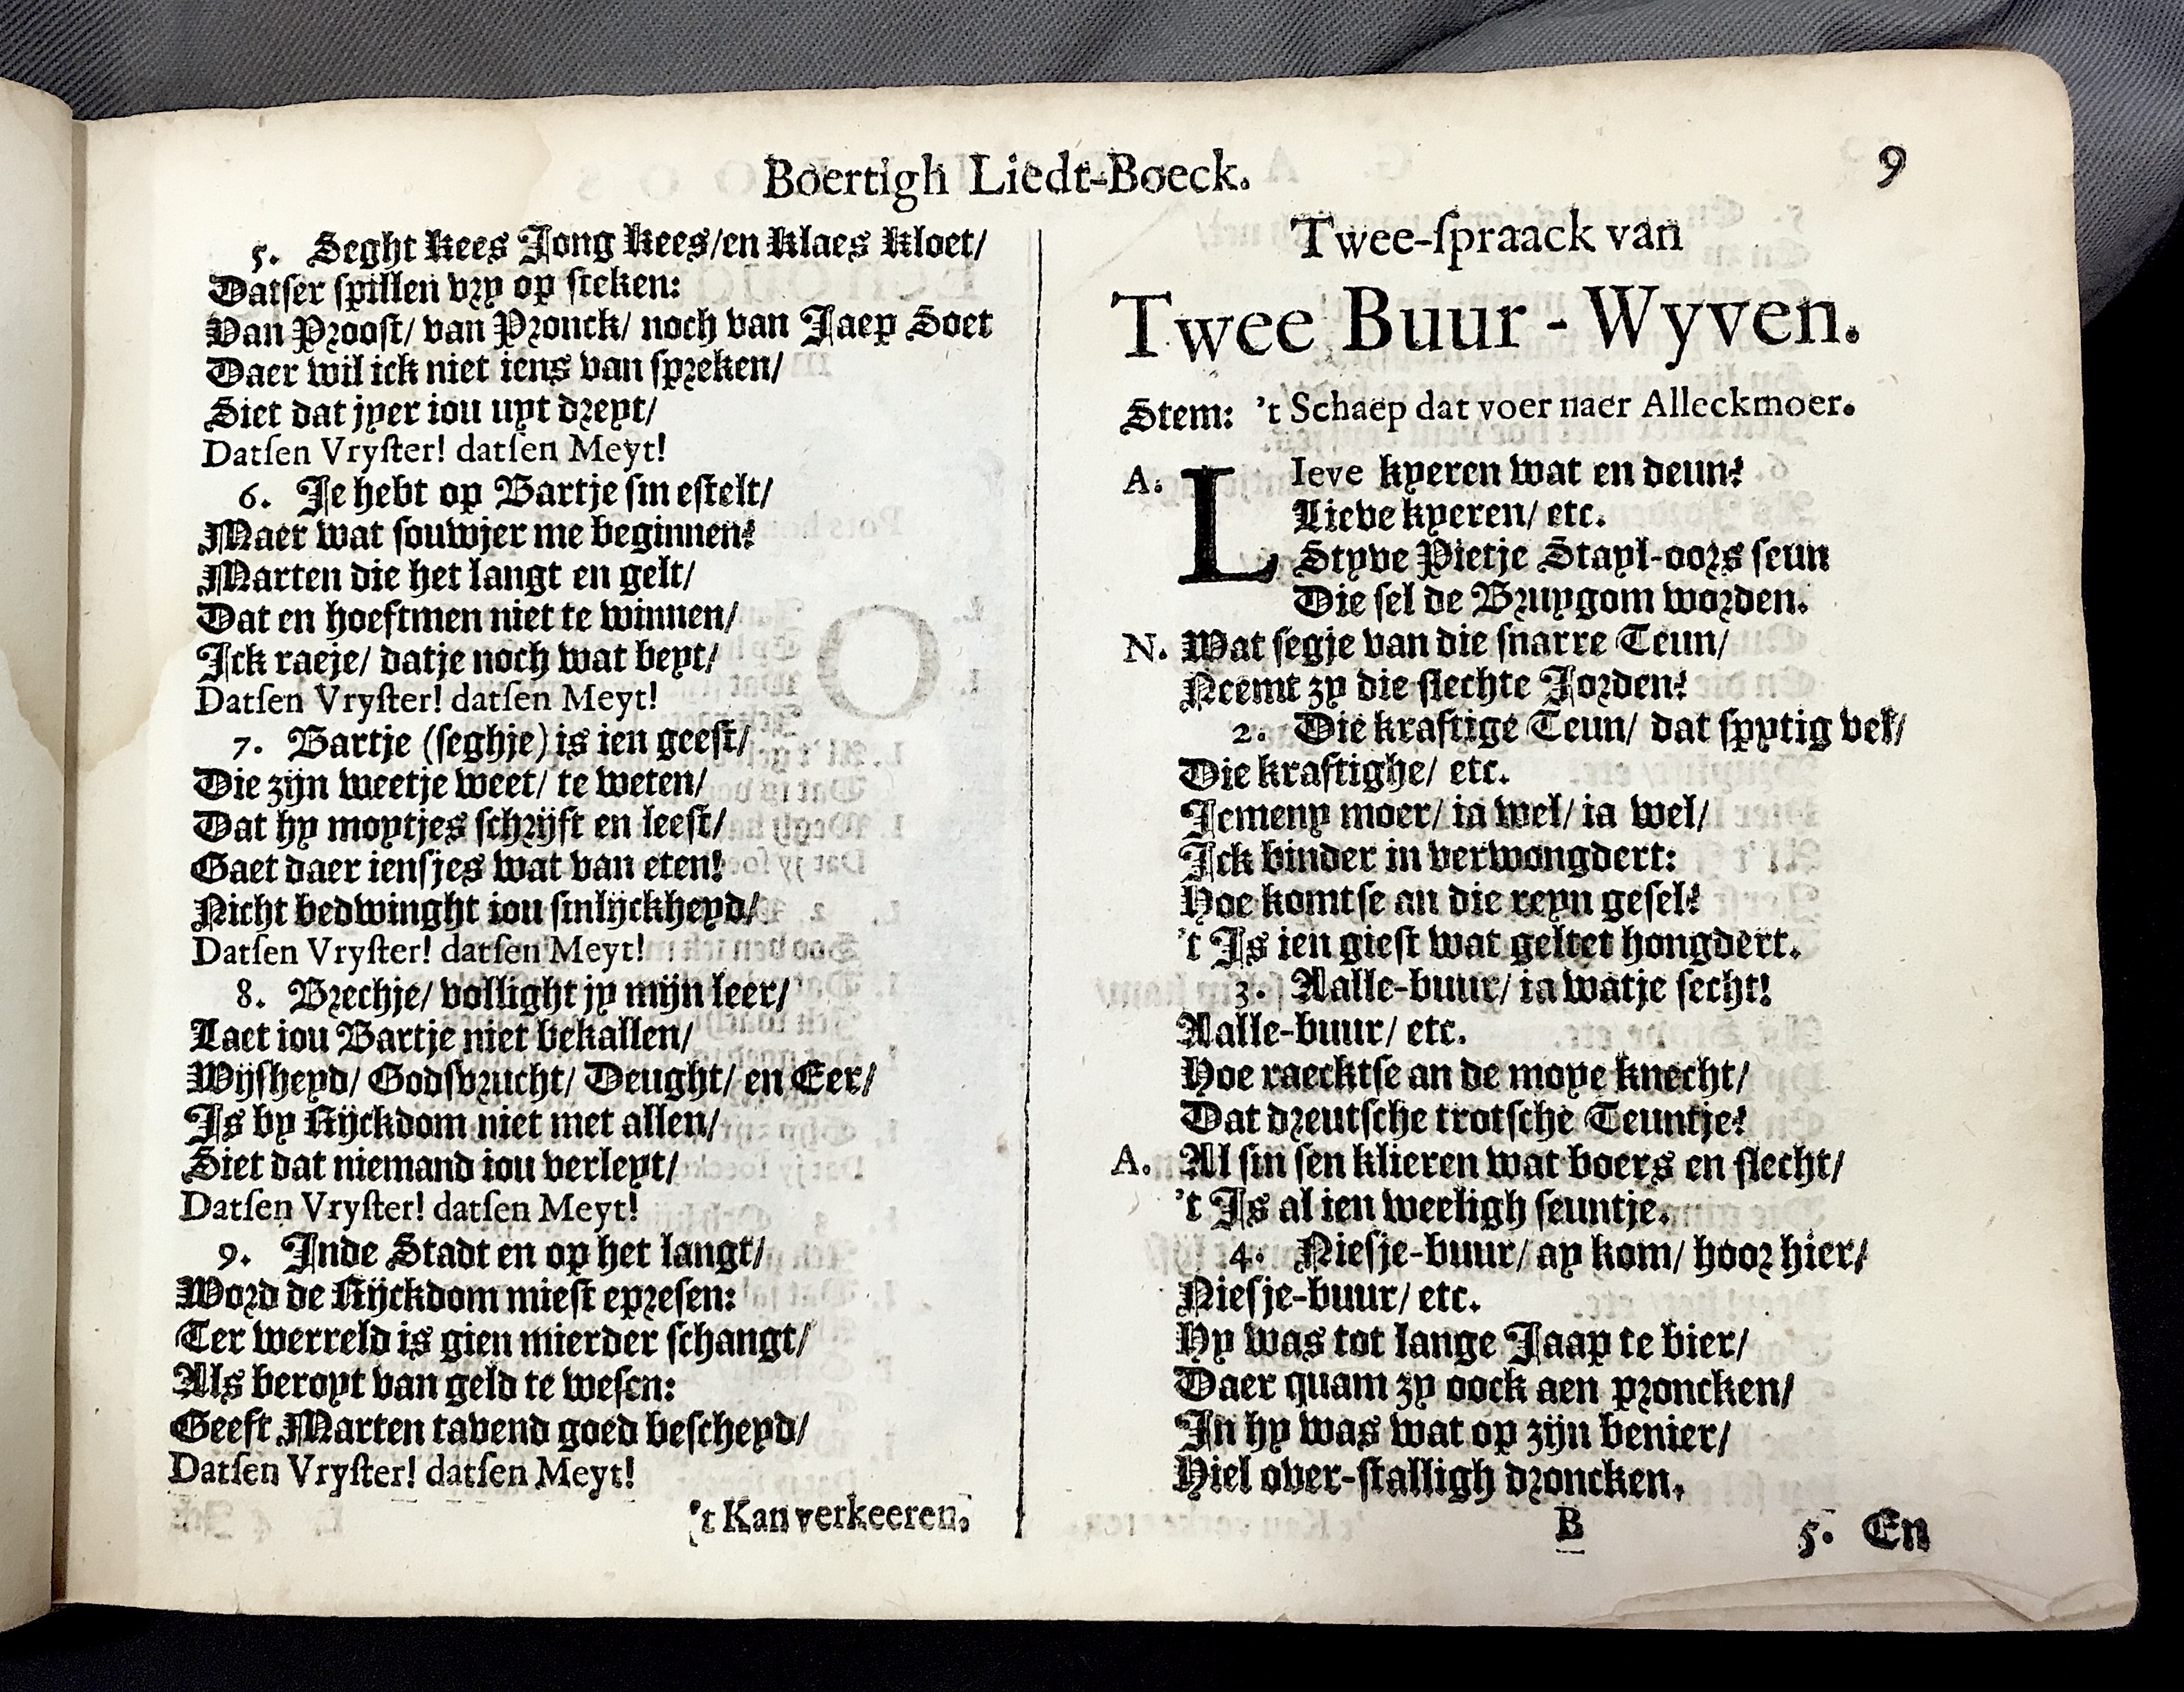 Boertigh Liedt-Boeck.
9
5. Seght Kees Jong Kees/en Klaes Kloet/
Datser spillen vry op steken:
Van Proost/ van Pronck/ noch van Jaep Soet
Daer wil ick niet iens van spreken/
Siet dat jyer iou uyt dreyt/
Datsen Vryster! datsen Meyt!
6. Je hebt op Bartje sin estelt/
Maer wat souwjer me beginnen?
Marten die het langt en gelt/
Dat en hoeftmen niet te winnen/
Ick raeje/ datje noch wat beyt/
Datsen Vryster! datsen Meyt!
7. Bartje (seghje) is ien geest/
Die zijn weetje weet/ te weten/
Dat hy moytjes schrijft en leest/
Gaet daer iensjes wat van eten!
Nicht bedwinght iou sinlijckheyd/
Datsen Vryster! datsen Meyt!
8. Brechje/ vollight jy mijn leer/
Laet iou Bartje niet bekallen/
Wijsheyd/ Godsvrucht/ Deught/ en Eer/
Is by Rijckdom niet met allen/
Siet dat niemand iou verleyt/
Datsen Vryster! datsen Meyt!
9. Inde Stadt en op het langt/
Word de Rijckdom miest epresen:
Ter werreld is gien mierder schangt/
Als beroyt van geld te wesen:
Geeft Marten tavend goed bescheyd/
Datsen Vryster! datsen Meyt!
't Kan verkeeren.
Twee-spraack van
Twee Buur-Wyven.
Stem: 't Schaep dat voer naer Alleckmoer.
A. LIeve kyeren wat en deun?
Lieve kyeren/ etc.
Styve Pietje Stayl-oors seun
Die sel de Bruygom worden.
N. Wat segje van die snarre Teun/
Neemt zy die slechte Jorden?
2. Die kraftige Teun/ dat spytig vel/
Die kraftighe/ etc.
Jemeny moer/ ia wel/ ia wel/
Ick binder in verwongdert:
Hoe komtse an die reyn gesel?
't Is ien giest wat geltet hongdert.
3. Aalle-buur/ ia watje secht!
Aalle-buur/ etc.
Hoe raecktse an de moye knecht/
Dat dreutsche trotsche Teuntje?
A. Al sin sen klieren wat boers en slecht/
't Is al ien weeligh seuntje.
4. Niesje-buur/ ay kom/ hoor hier/
Niesje-buur/ etc.
Hy was tot lange Jaap te bier/
Daer quam zy oock aen proncken/
In hy was wat op zijn benier/
Hiel over-stalligh droncken.
B
5. En